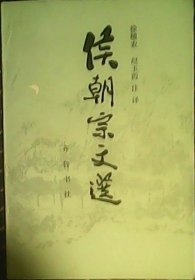 徐植农 赵玉霞 注译
侯朝宗文選
齐鲁书社